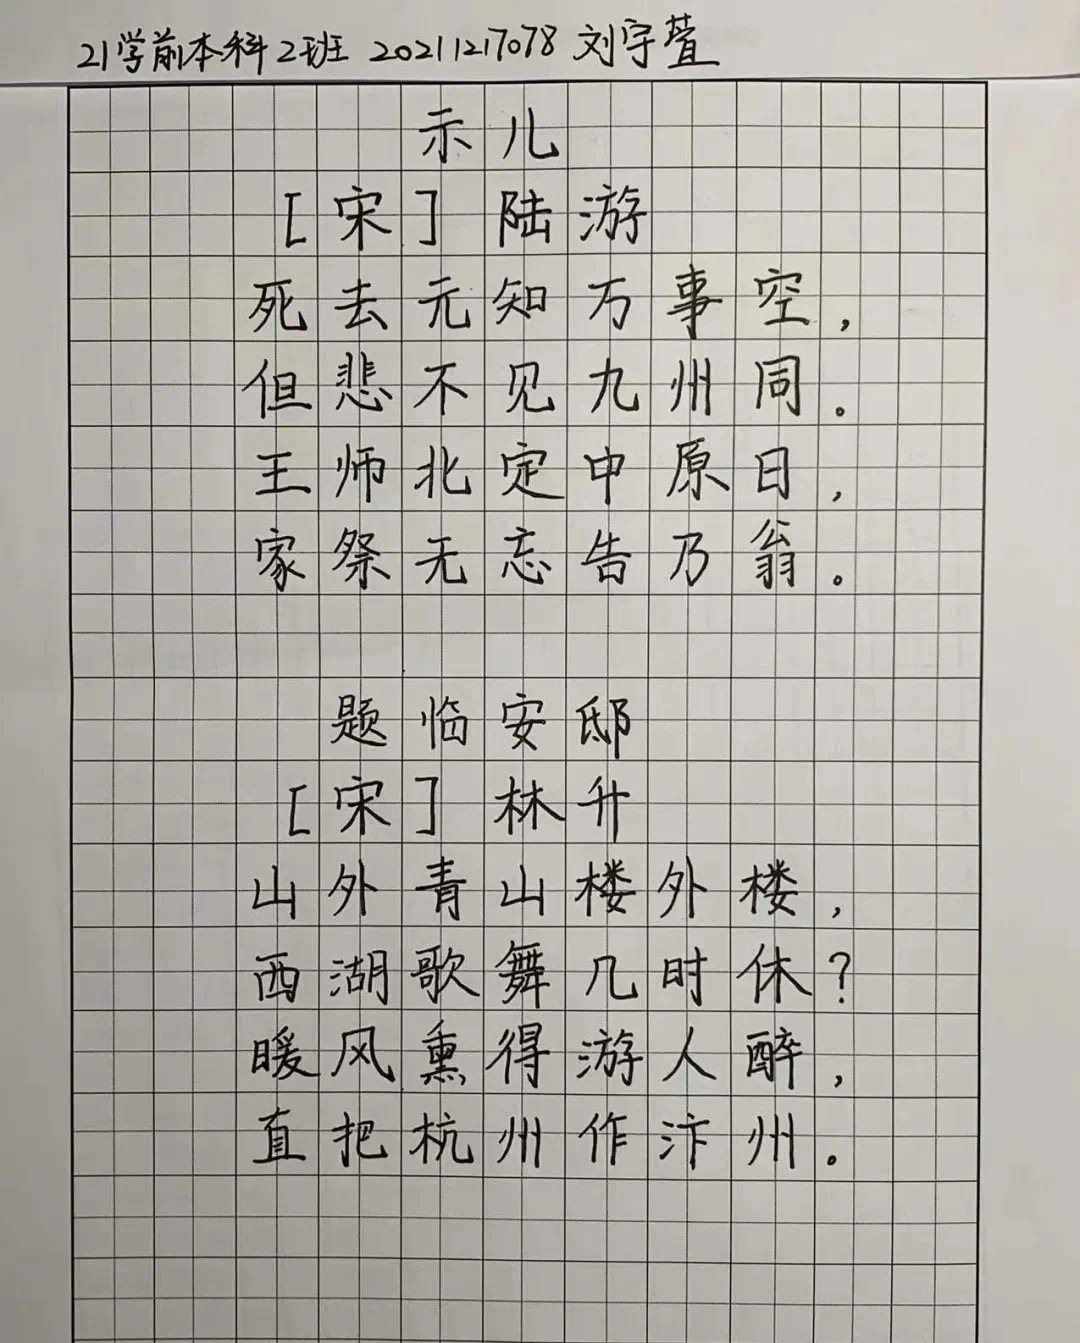 21学前本科2班 20211217078 刘宇萱
示儿
[宋] 陆游
死去元知万事空,
但悲不见九州同。
王师北定中原日,
家祭无忘告乃翁。
题临安邸
[宋] 林升
山外青山楼外楼,
西湖歌舞几时休?
暖风熏得游人醉,
直把杭州作汴州。